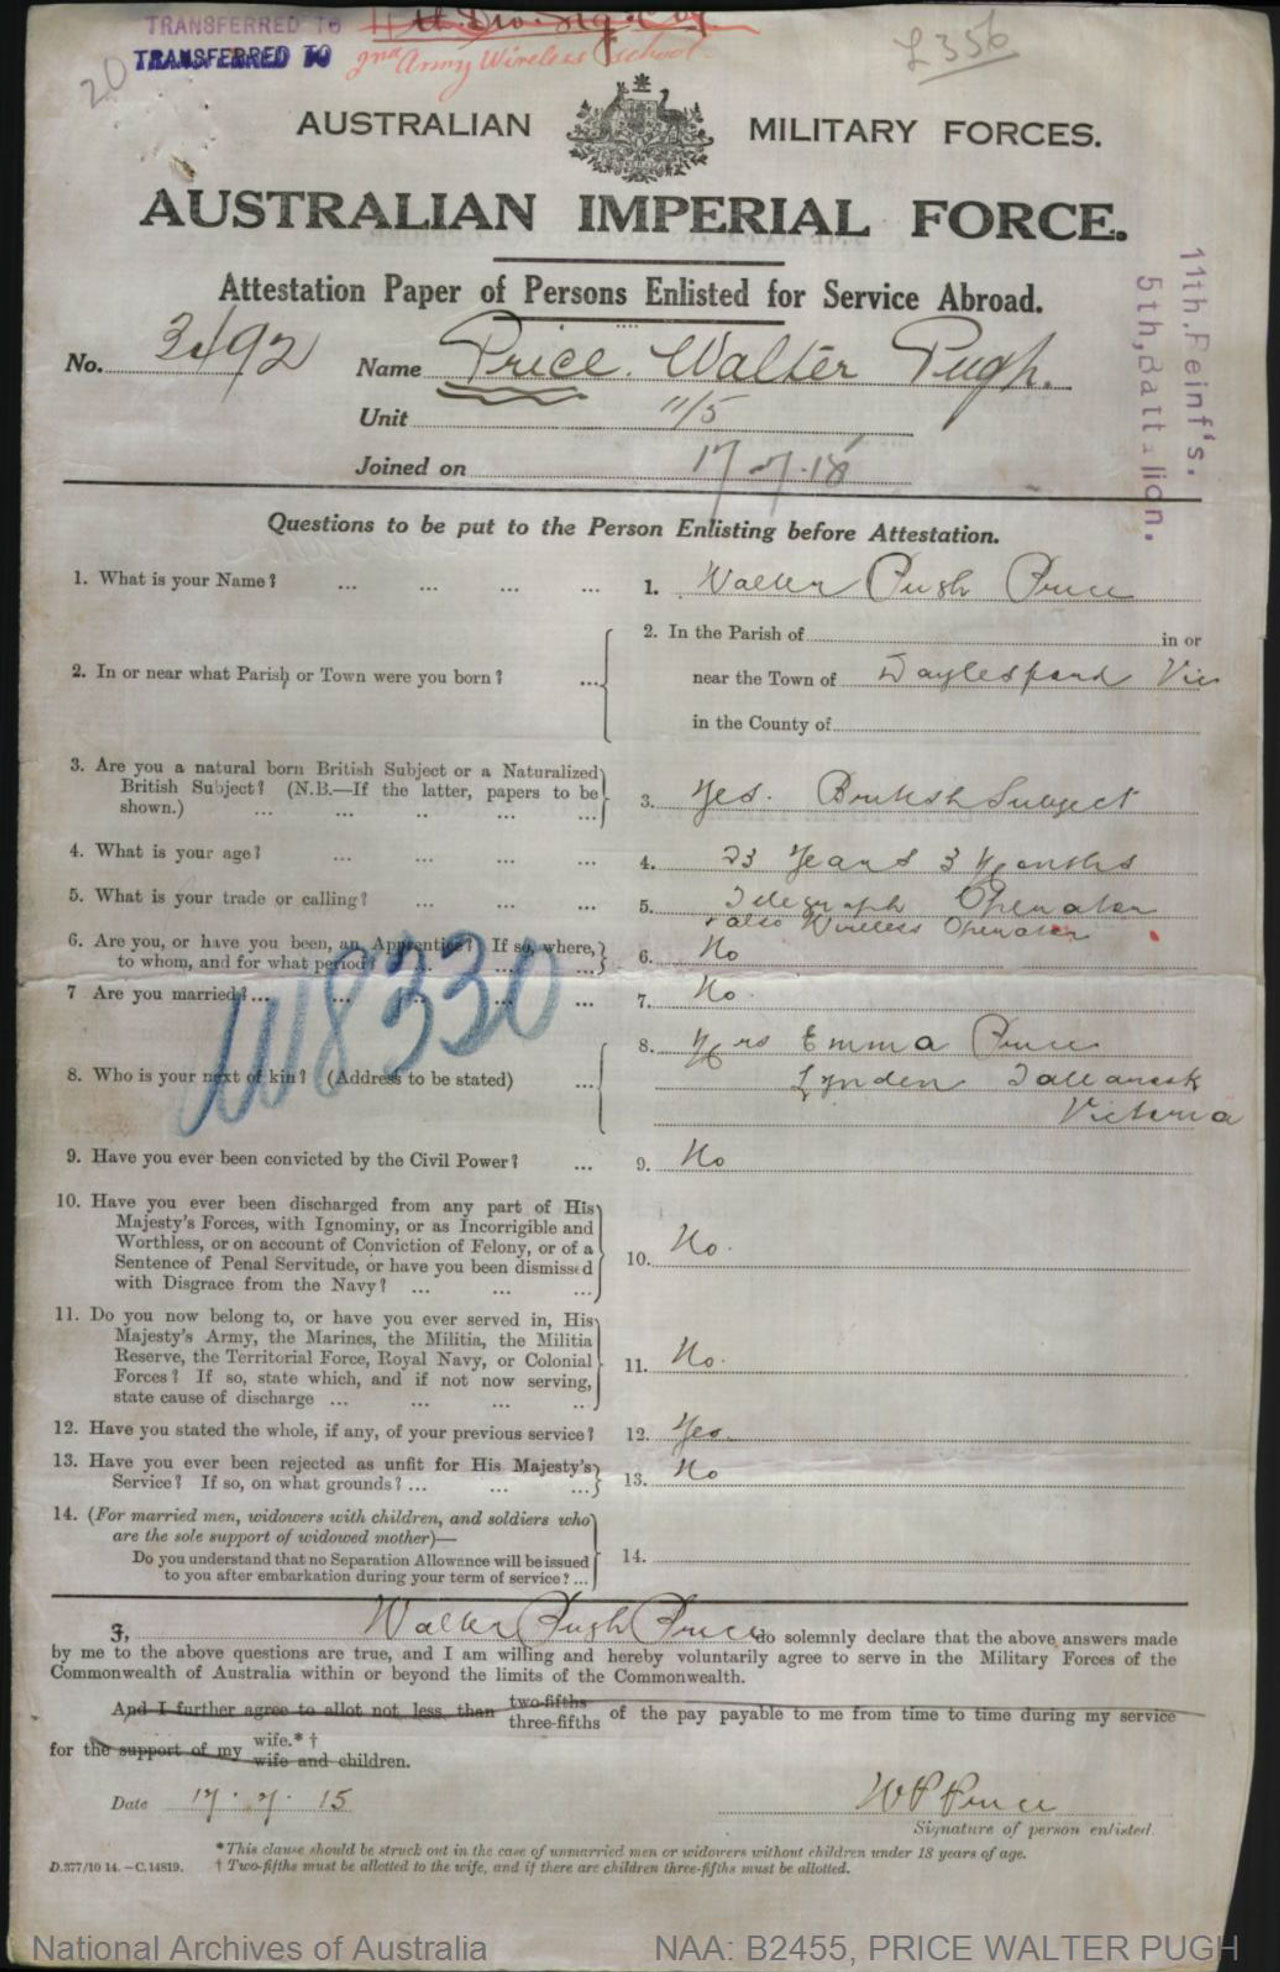 TRANSFERRED TO
TRANSFERRED TO
2nd Army Wireless school.
20
£356
AUSTRALIAN MILITARY FORCES.
AUSTRALIAN IMPERIAL FORCE.
Attestation Paper of Persons Enlisted for Service Abroad.
11th. Reinf's.
5th, Battalion.
No. 3492 Name Price. Walter Pugh.
Unit 11/5
Joined on
Questions to be put to the Person Enlisting before Attestation.
1. What is your Name? ... ... ... ... 1. Walter Pugh Price
2. In or near what Parish or Town were you born? ... 2. In the Parish of in or
near the Town of Daylesford Vic
in the County of
3. Are you a natural born British Subject or a Naturalized
British Subject? (N.B.—If the latter, papers to be
shown.) ... ... .. ... ... 3. Yes. British Subject
4. What is your age? ... ... ... ... 4. 23 Years 3 Months
5. What is your trade or calling? ... ... ... 5. Telegraph Operator
+ also Wireless Operator
6. Are you, or have you been, an Apprentice? If so, where,
to whom, and for what period? ... ... ... 6. No
7 Are you married? ... ... ... ... ... 7. No.
W8330
8. Who is your next of kin? (Address to be stated) ... 8. Mrs Emma Price
Lynden
Victoria
9. Have you ever been convicted by the Civil Power? ... 9. No
10. Have you ever been discharged from any part of His
Majesty's Forces, with Ignominy, or as Incorrigible and
Worthless, or on account of Conviction of Felony, or of a
Sentence of Penal Servitude, or have you been dismissed
with Disgrace from the Navy? ... ... ... 10. No.
11. Do you now belong to, or have you ever served in, His
Majesty's Army, the Marines, the Militia, the Militia
Reserve, the Territorial Force, Royal Navy, or Colonial
Forces? If so, state which, and if not now serving,
state cause of discharge ... ... ... .. 11. No.
12. Have you stated the whole, if any, of your previous service? 12. Yes.
13. Have you ever been rejected as unfit for His Majesty's
Service? If so, on what grounds? ... ... ... 13. No
14. (For married men, widowers with children, and soldiers who
are the sole support of widowed mother)—
Do you understand that no Separation Allowance will be issued
to you after embarkation during your term of service? ... 14.
I, Walter Pugh Price do solemnly declare that the above answers made
by me to the above questions are true, and I am willing and hereby voluntarily agree to serve in the Military Forces of the
Commonwealth of Australia within or beyond the limits of the Commonwealth.
And I further agree to allot not less than two-fifths three-fifths of the pay payable to me from time to time during my service
for the support of my wife.* † wife and children.
Date 17. 7. 15 W P Price
Signature of person enlisted.
* This clause should be struck out in the case of unmarried men or widowers without children under 18 years of age.
D.377/10 14.—C.14819. † Two-fifths must be allotted to the wife, and if there are children three-fifths must be allotted.
National Archives of Australia NAA: B2455, PRICE WALTER PUGH